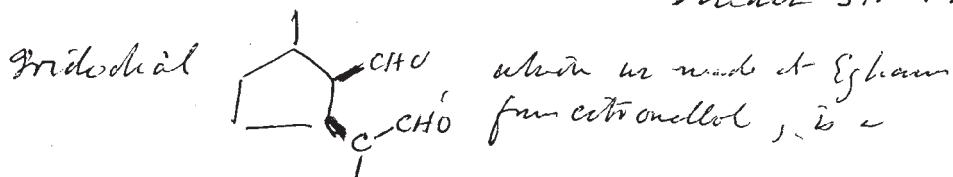 Iridodial CHO which we made at Egham
CHO from citronellol, is a
C